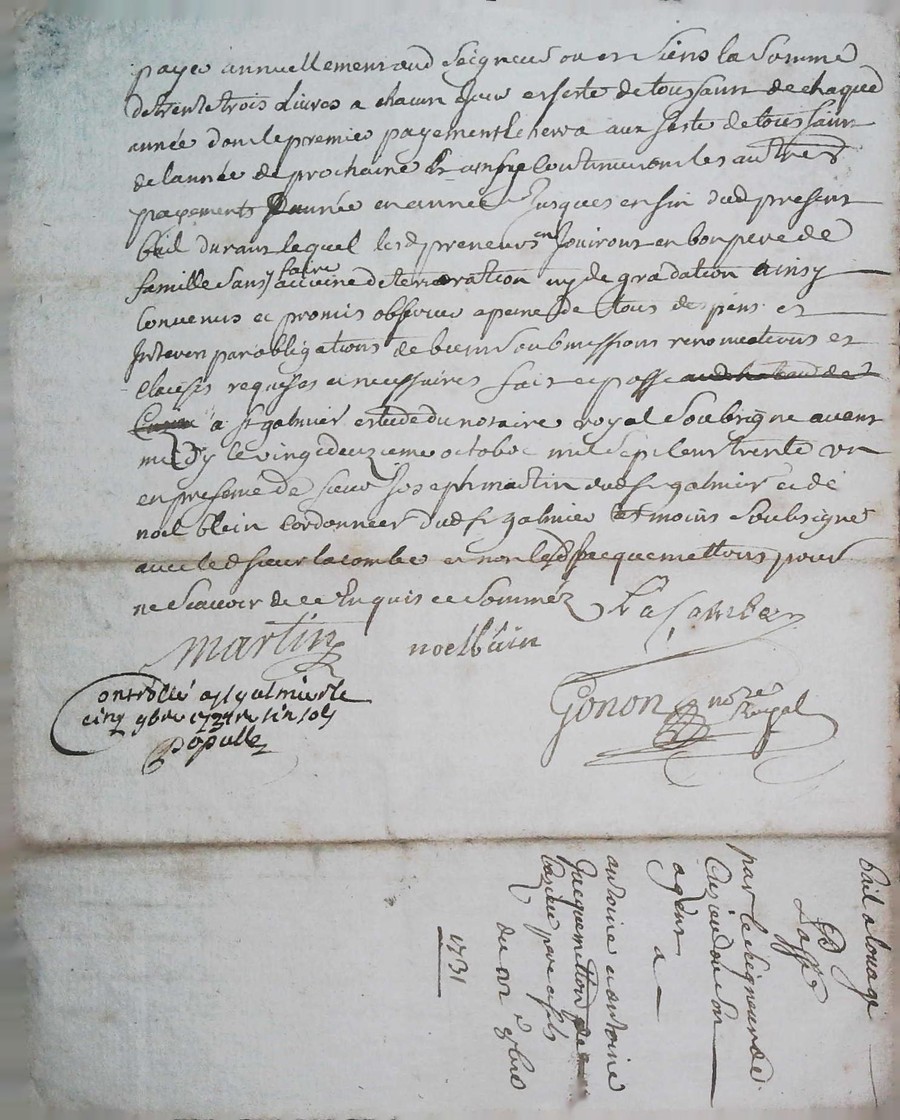 payer annuellement aud Seigneur ou es Siens la Somme
de trente trois Livres a chacun jour et feste de toussaint de chaque
année dont le premier payement Echerra aux feste de toussaint
de lannée prochaine Et ainsy Continueront les autres
payements Dannée en année Jusques en fin dud present
bail durant lequel lesd preneurs en Jouiront en bon pere de
famille Sans y faire aucune deterioration ny degradation ainsy
Convenus et promis observer a peine de tous depens et
Interets par obligations de biens Soubmissions renonciations et
Clauses requises et necessaires fait et passé
à St galmier estude du notaire royal Soubsigne avant
midy le vingt deuzieme octobre mil Sept cent trente un
en presence de Sieur Joseph martin dud St galmier et de
noel blein Cordonnier dud St galmier temoins Soubsignes
avec led Sieur lacombe et non lesd Jacquemettons pour
ne Scavoir de ce Enquis et Sommés Lacombe
martin noel blein
Controllé a St galmier le
cinq 9bre 1731 re six sols
Populle
Gonon nore
Royal
bail a louage
Passé
par le Seigneur de
Cuzieu ou Son
agent a
antoine et antoine
Jacquemetton de
pere et fils
du 22 8bre
1731